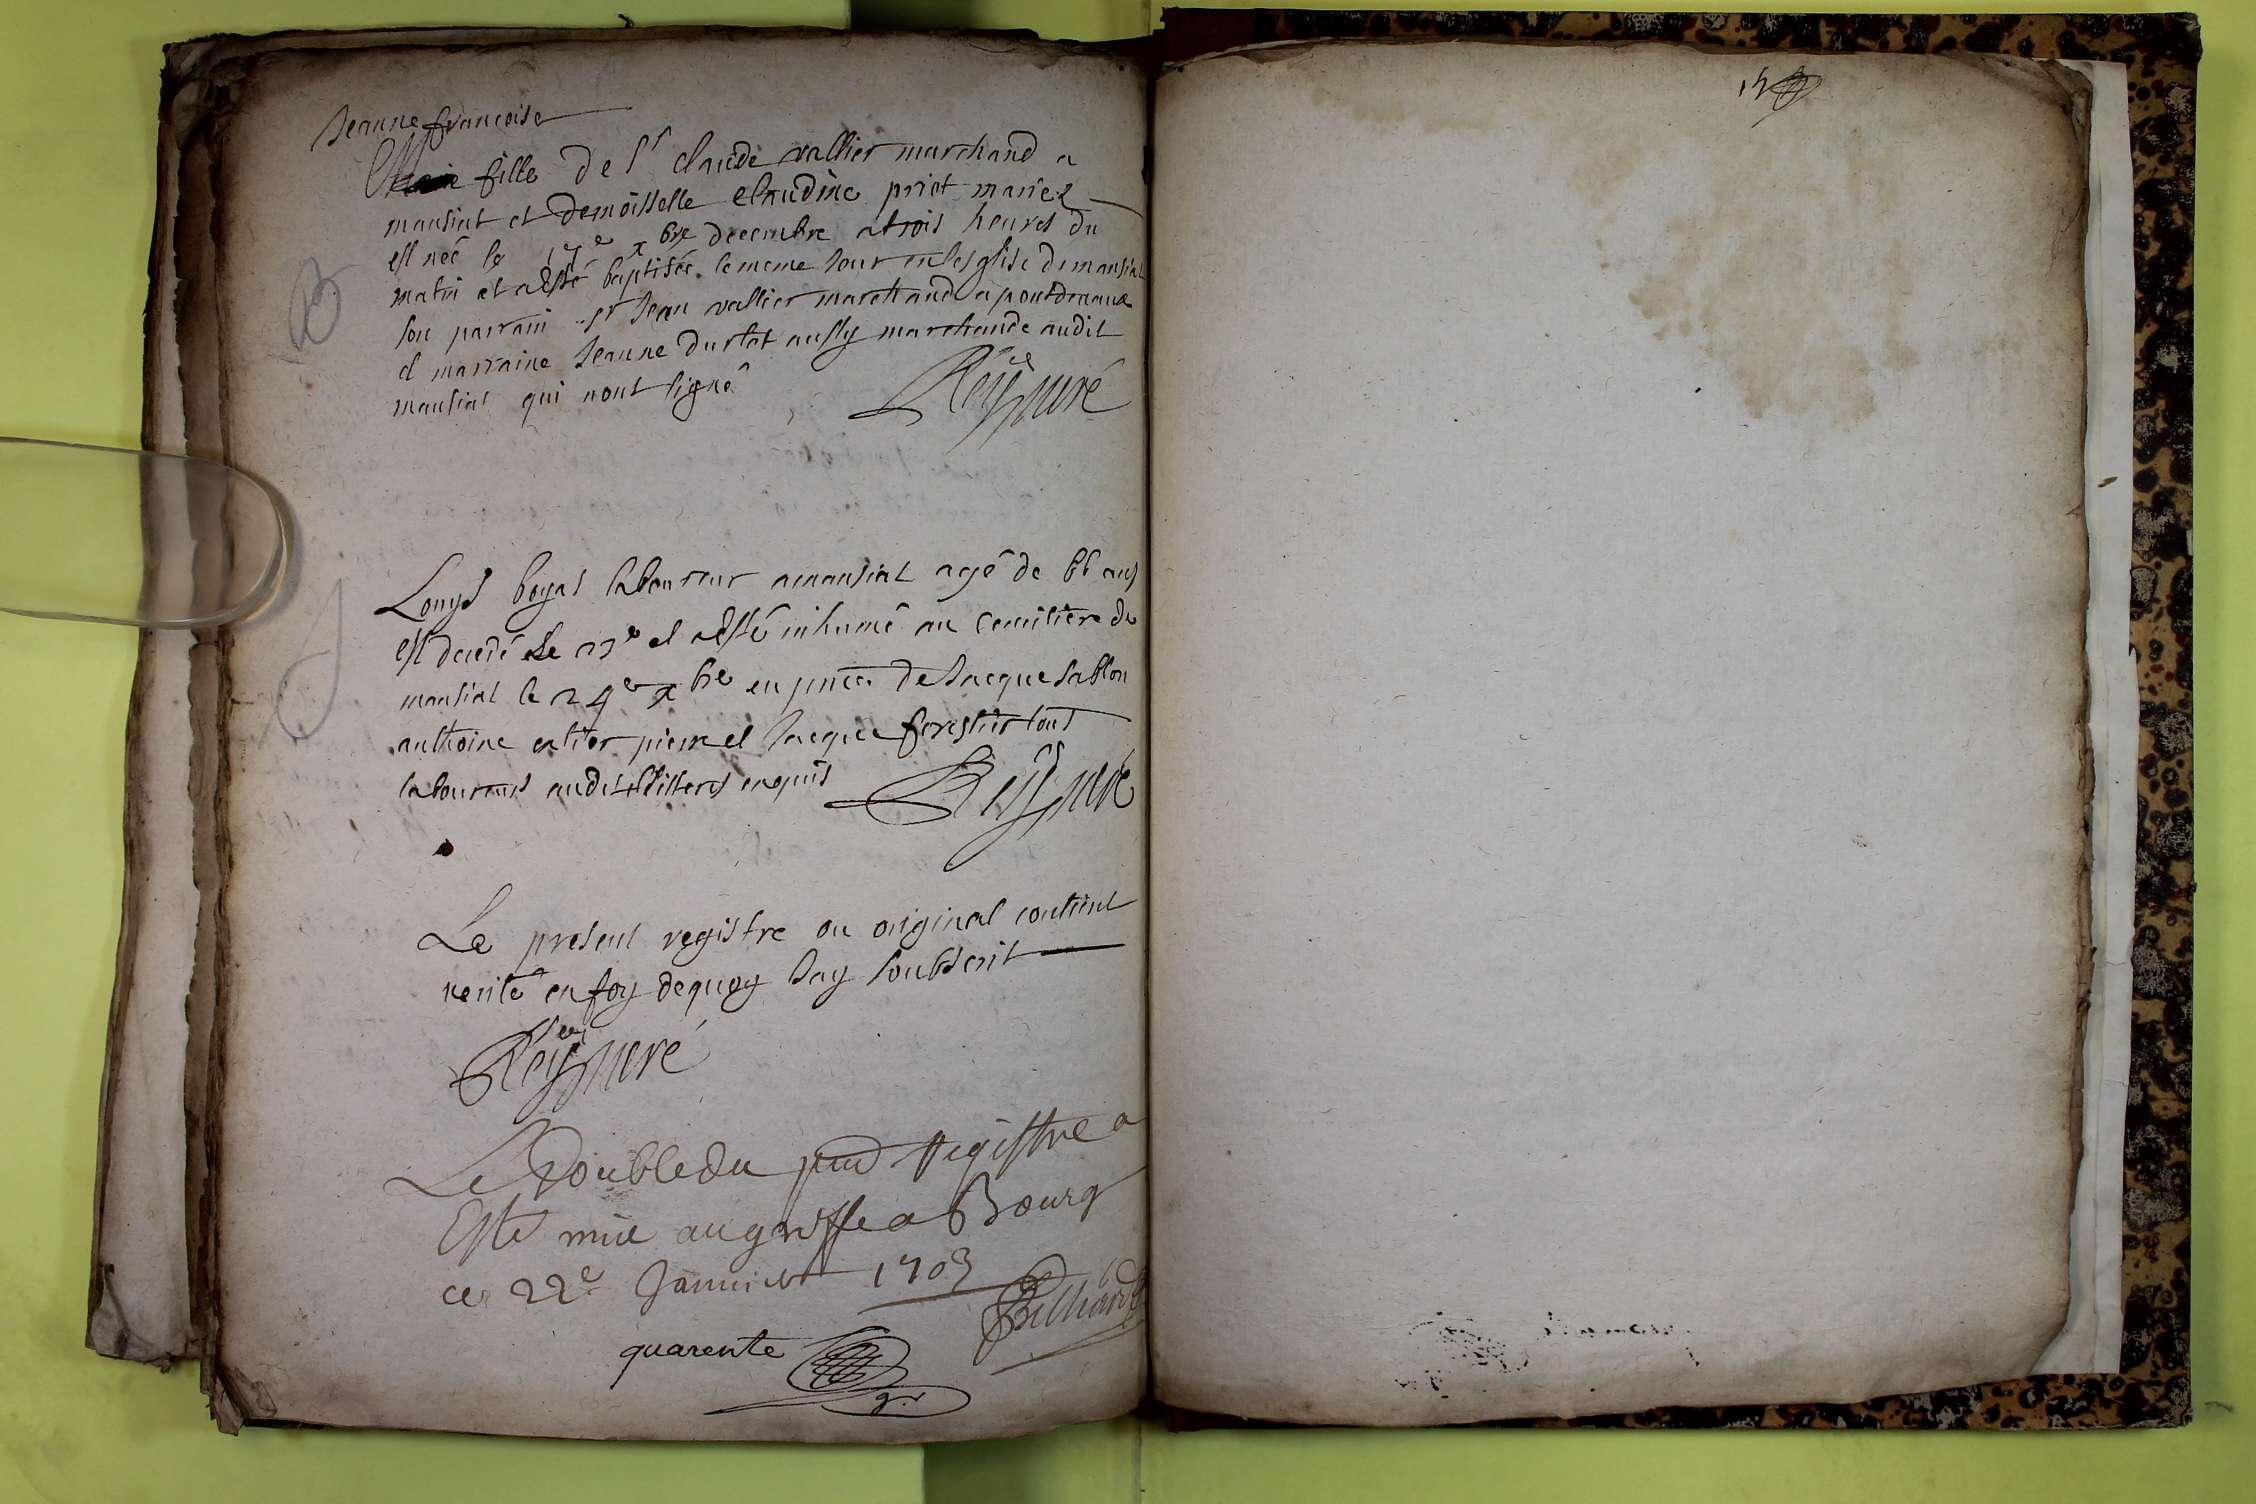 Jeanne francoise
fille de Sr claude vallier marchand a
mansiat et demoisselle claudine priet mariez
est neé le 17e xbre decembre a trois heures du
matin et a esté baptisée le meme Jour en lesglise de mansiat
son parrain sr Jean vallier marchand a pontdevaux
et marraine Jeanne durlet aussy marchande audit
mansiat qui nont signé
Rey curé
B
Louys boyat laboureur a mansiat agé de 66 ans
est decedé le 23e et a esté inhumé au cemitiere de
mansiat le 24e xbre en pnce de Jacque Sablon
anthoine pierre et Jacque forestier tous
laboureurs audit illiteres enquis
Rey curé
S
Le present registre ou original contient
verité en foy dequoy Jay soubscrit
Rey curé
Le Double du pnt registre a
Esté mis au greffe a Bourg
ce 22e Janvier 1703
quarente